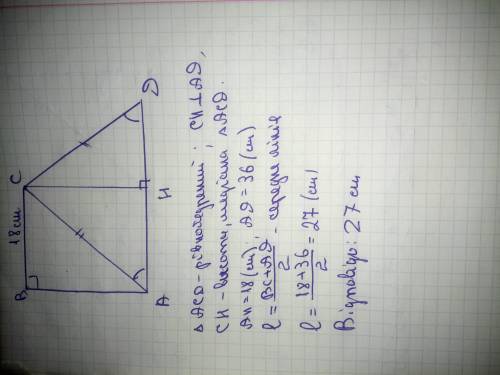 B
18 см
C
D
A
H
△ACD - рівнобедрений; CH⊥AD,
CH - висота, медіана △ACD.
AH = 18 (см), AD = 36 (см)
l = BC+AD/2 - середня лінія
l = 18+36/2 = 27 (см)
Відповідь: 27 см